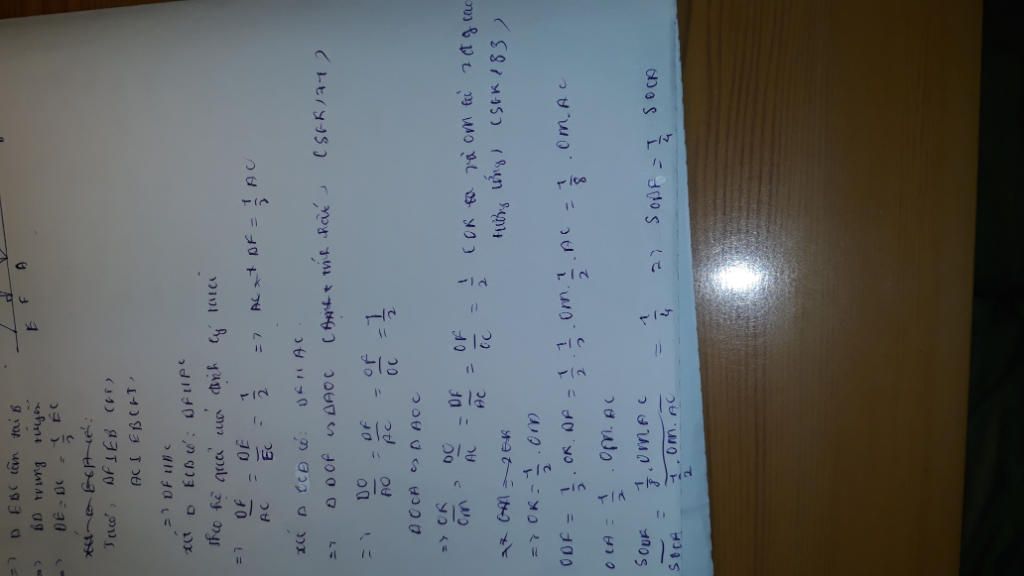 E F A
=> Δ EBC cân tại B
=> BD trung tuyến
=> DE = DC = 1/2 EC
Ta có: DF ⊥ EB (gt)
AC ⊥ EB (gt)
=> DF // AC
xét Δ ECA có: DF // AC
theo hệ quả của định lý talet
=> DF/AC = DE/EC = 1/2 => DF = 1/2 AC
xét có: DF // AC
=> Δ DOF ∽ Δ AOC (SGK/71)
=> DO/AO = DF/AC = OF/OC = 1/2
Δ OCA ∽ Δ AOC
=> OK/OM = DO/AC = DF/AC = OF/OC = 1/2 (OK và OM là 2 đg cao
tương ứng) (SGK/83)
=> OK = 1/2 . OM
ODF = 1/2 . OK . DF = 1/2 . 1/2 . OM . 1/2 . AC = 1/8 . OM . AC
OCA = 1/2 . OM . AC
SODF/SOCA = 1/8 . OM . AC / 1/2 . OM . AC = 1/4 => SODF = 1/4 SOCA